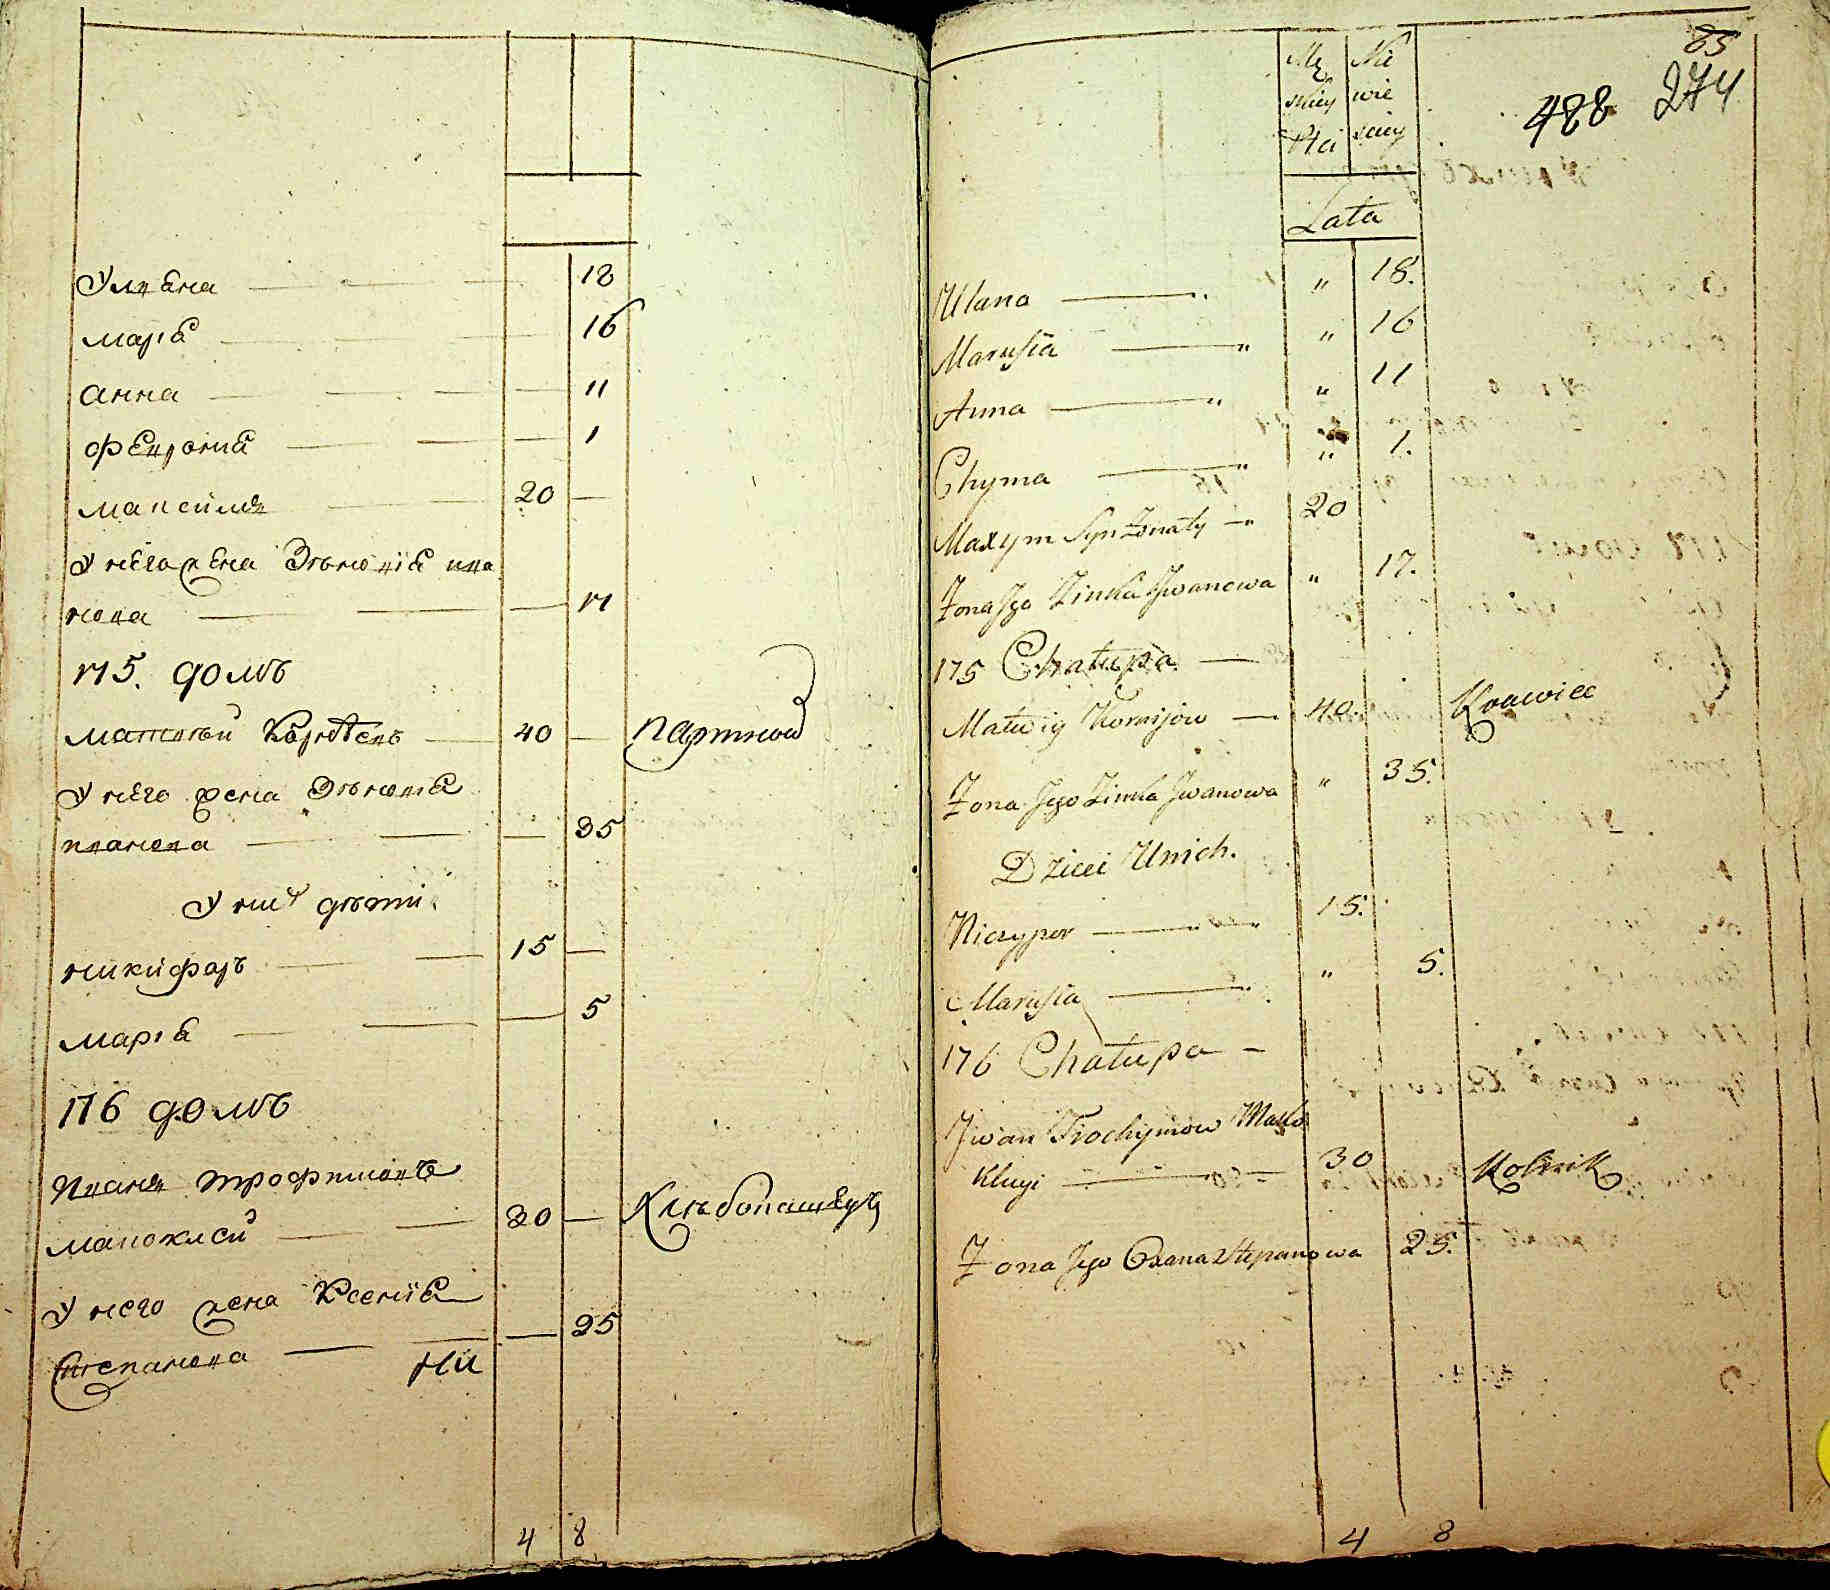 Улияна 18
мариа 16
анна 11
февронiа 1
максимъ 20
У него жена Зѣновiа ива
нова 17
175. домъ
матвѣй Корнѣевъ 40 партной
У него жена Зѣновiа
иванова 35
У них дѣти
никифоръ 15
мариа 5
176 домъ
Иванъ трофимовъ
30 хлѣбопашецъ
У него жена Ксенiа
Степанова 25
4 8
83
488 274
Mę Nie
skiey wie
Płci sciey
Lata
Ulana " 18.
Marusia " 16
Anna " 11
Chyma " 1.
Maxym Syn Żonaty 20
Żona Jego Zinka Jwanowa " 17.
175 Chałupa
Matwiy Kornijow 40. Krawiec
Żona Jego Zinka Jwanowa " 35.
Dzieci Unich.
Niczypor 15.
Marusia " 5.
176 Chałupa
Jwan Trochymow
30 Rolnik
Żona Jego Oxana Stepanowa 25.
4 8